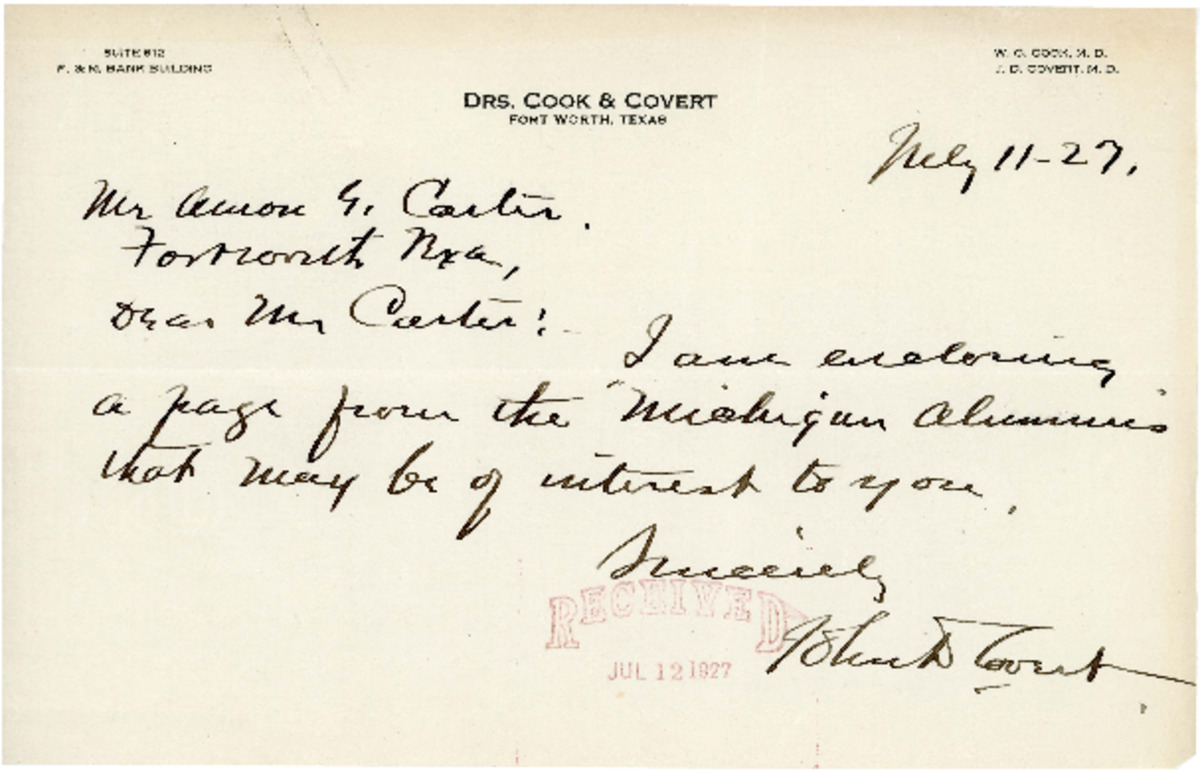 SUITE 612
F. & M. BANK BUILDING
W. G. COOK, M. D.
J. D. COVERT, M. D.
DRS. COOK & COVERT
FORT WORTH, TEXAS
July 11-27.
Mr Amon G. Carter.
Fortworth Texa,
Dear Mr Carter:
I am enclosing
a page from the "Michigan Alumnus
that may be of interest to you.
Sincerely
John D Covert
RECEIVED
JUL 12 1927